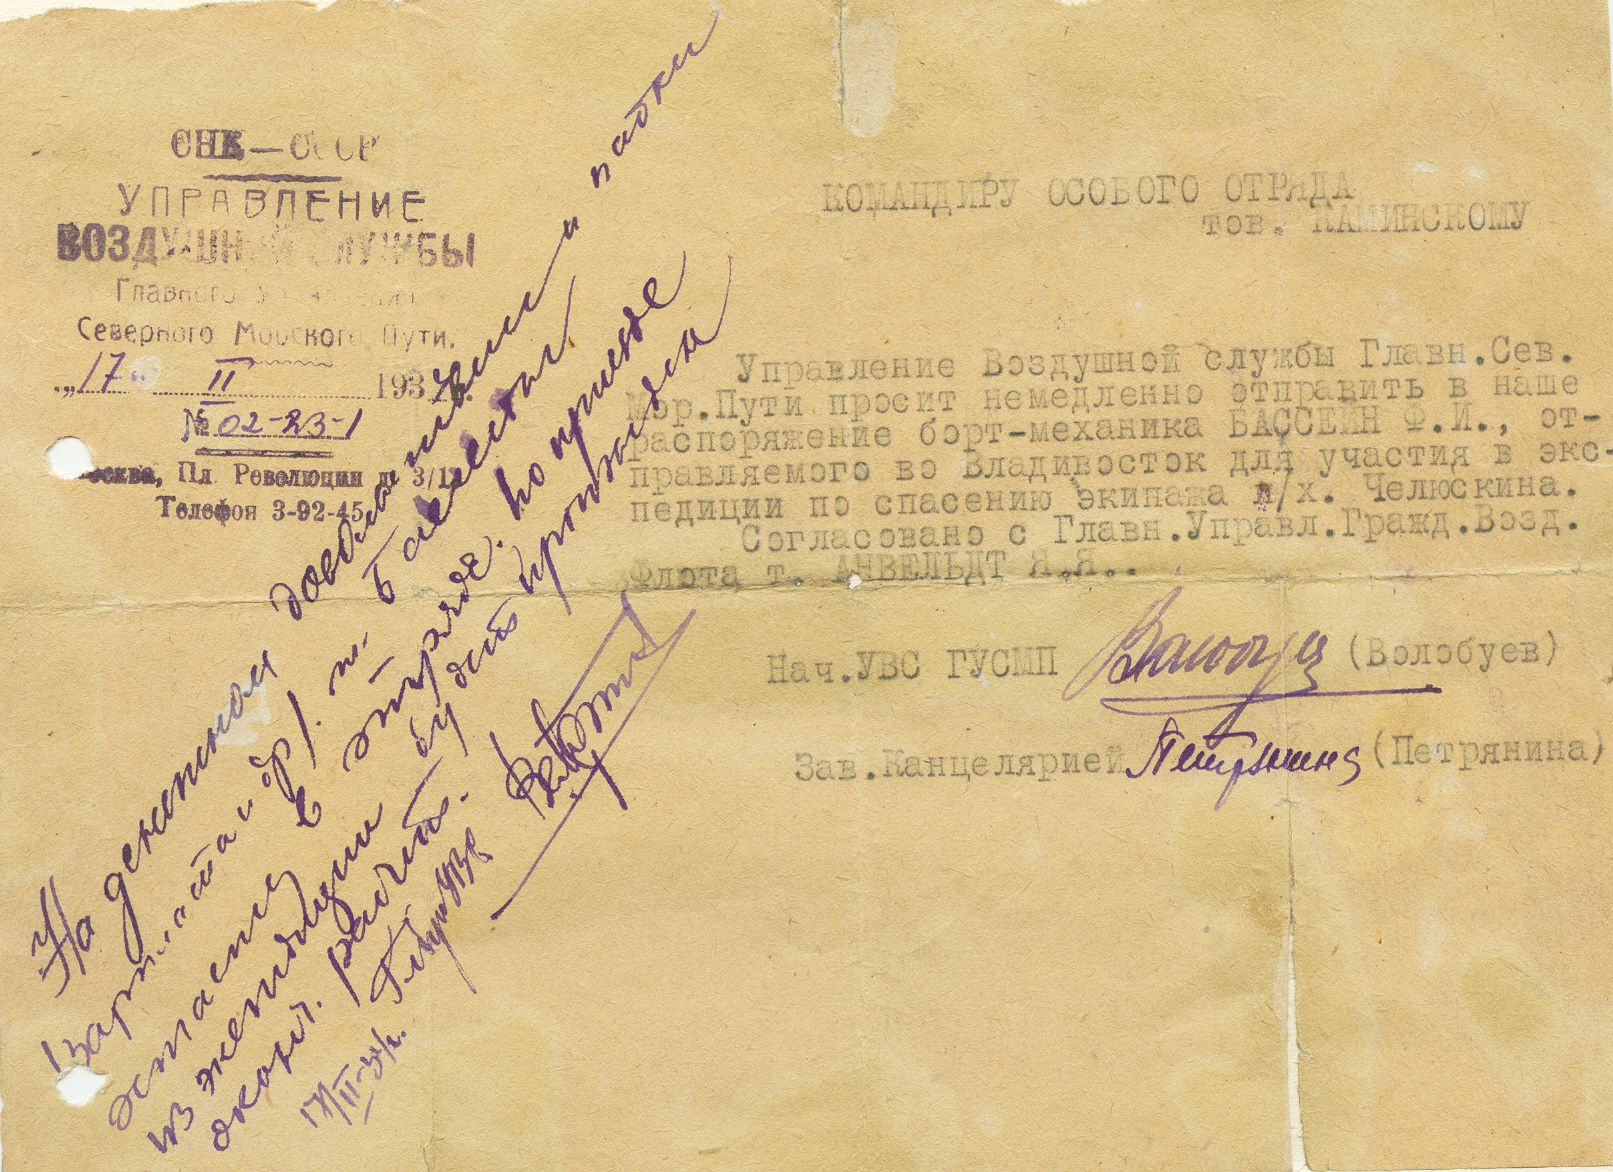 СНК—СССР
УПРАВЛЕНИЕ
ВОЗДУШНОЙ СЛУЖБЫ
Главного Управления
Северного Морского Пути.
„17“ II 1934г.
№ 02-23-1
Москва, Пл Революции д. 3/1
Телефон 3-92-45
КОМАНДИРУ ОСОБОГО ОТРЯДА
тов. КАМИНСКОМУ
Управление Воздушной службы Главн.Сев.
Мор.Пути просит немедленно отправить в наше
распоряжение борт-механика БАССЕЙН Ф.И., от-
правляемого во Владивосток для участия в экс-
педиции по спасению экипажа п/х. Челюскина.
Согласовано с Главн.Управл.Гражд.Возд.
Флота т. АНВЕЛЬДТ Я.Я..
Нач.УВС ГУСМП (Волобуев)
Зав.Канцелярией Петрянина (Петрянина)
На денежном довольствии и пайки
/зарплата и др/. т. Бассейн
в отряде. по приезде
из экспедиции будет произведен
оконч. расчет.
17/II-34г.